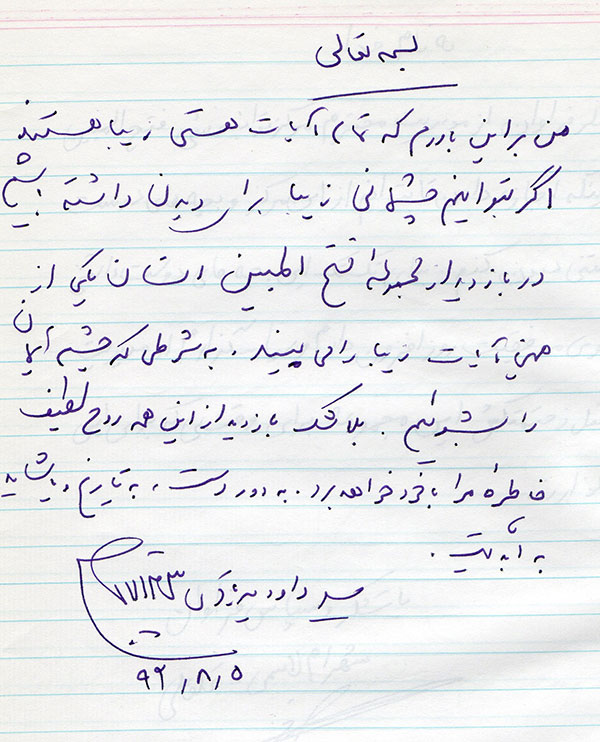 بسمه تعالی
من بر این باورم که تمام آیات هستی زیبا هستند
اگر بتوانیم چشمانی زیبا برای دیدن داشته باشیم
در بازدید از مجموعه فتح المبین انسان یکی از
همین آیات زیبا را می بیند، به شرطی که چشم دلمان
را بشوئیم. بلاشک بازدید از این همه روح لطیف
خاطره مرا با خود خواهد برد. به دور دست، به تاریخ و شاید
به ابدیت.
سید داود
۹۲٫۸٫۵